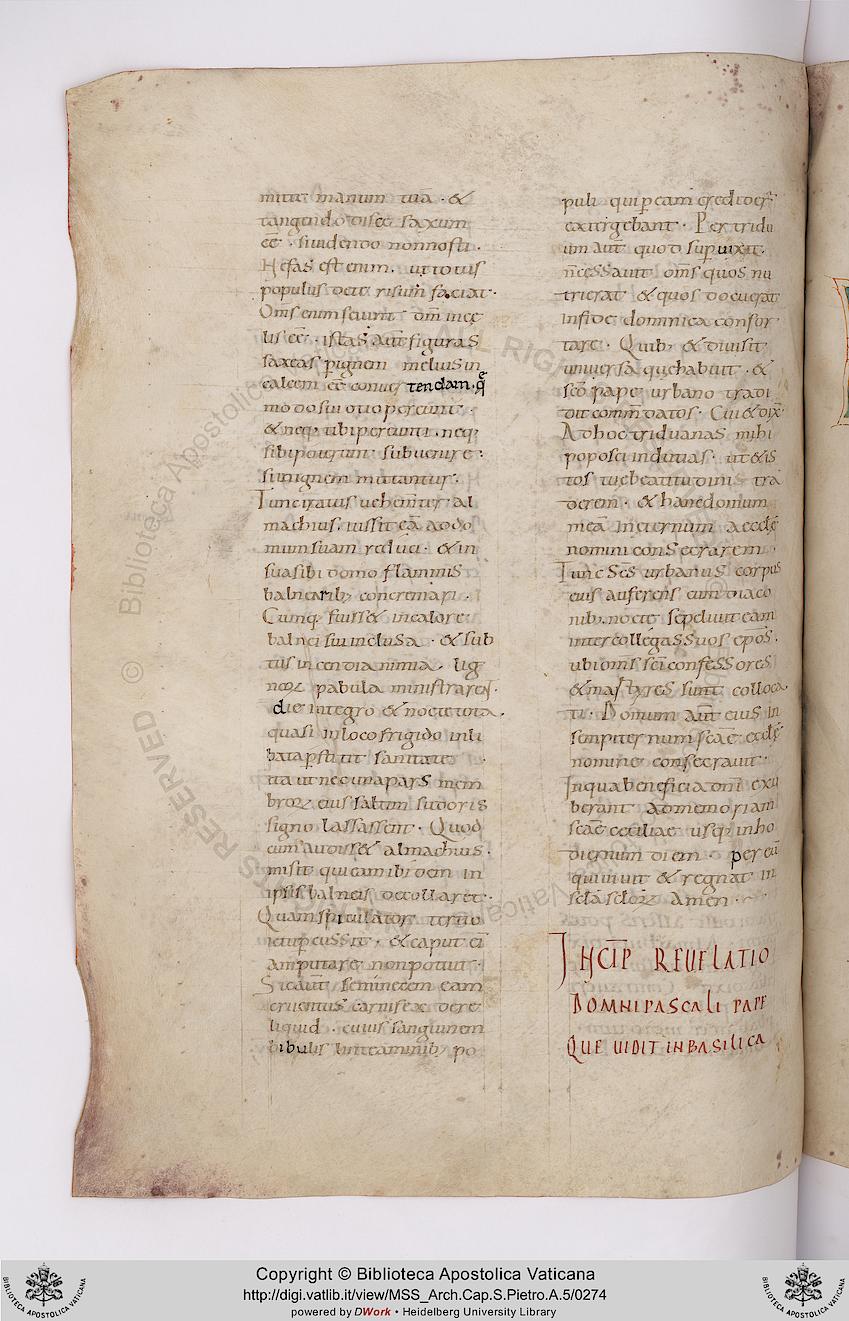 mitte manum tuā · &
tangendo disce saxum
eē · si uidendo non nosti ·
Nefas est enim · ut totus
populus de te risum faciat ·
Om̄s enim sciunt · dm̄ in cę
lis eē · istas aut̄ figuras
saxeas ꝑ ignem melius in
calcem eē conuertendam · q̄
modo sui otio pereunt ·
& neq; tibi pereunti · neq;
sibi poterunt subuenire :
si in ignem mittantur ·
Tunc iratus uehemt̄er al
machius · iussit eā ad do
mum suam reduci · & in
sua sibi domo flammis
balnearib; concremari ·
Cumq; fuiss& in calore
balnei sui inclusa · & sub
tus incendia nimia · lig
noꝝ pabula ministrarent ·
die integro & nocte tota ·
quasi in loco frigido inli
bata ꝑstitit sanitate ·
ita ut nec una pars mem
broꝝ eius saltim sudoris
signo lassassent · Quod
cum audiss& almachius ·
misit qui eam ibidem in
ipsis balneis decollaret ·
Quam spiculator tertio
ictu ꝑcussit · & caput ei
amputare non potuit ·
Sic aut̄ seminecem eam
cruentus carnifex dere
liquid · cuius sanguinem
bibulis linteaminib; po
puli qui ꝑ eam crediderant
extergebant · Per tridu
um aut̄ quod suꝑuixit ·
n̄ cessauit om̄s quos nu
trierat & quos docuerat
in fide dominica confor
tare · Quib; & diuisit
uniuersa quę habuit · &
scō pape urbano tradi
dit comm̄datos · Cui & dix̄
Ad hoc triduanas mihi
poposci indutias · ut & is
tos tuę beatitudinis tra
derem · & hanc domum
meā in ęternum ęcclę
nomini consecrarem ·
Tunc scs̄ urbanus corpus
eius auferens cum diaco
nib; nocte sepeliuit eam
inter collegas suos ep̄os ·
ubi om̄s sc̄i confessores
& martyres sunt colloca
ti · Domum aut̄ eius in
sempiternum scāe ęcclę
nomine consecrauit ·
In qua beneficia dn̄i exu
berant ad memoriam
scāe ceciliae usq; in ho
diernum diem · per eū
qui uiuit & regnat in
scl̄a scl̄oꝝ amen ·
INCIP REUELATIO
DOMNI PASCALI PAPE
QUE UIDIT IN BASILICA
© Biblioteca Apostolica Vaticana
ALL RIGHTS RESERVED
Copyright © Biblioteca Apostolica Vaticana
http://digi.vatlib.it/view/MSS_Arch.Cap.S.Pietro.A.5/0274
powered by DWork • Heidelberg University Library
BIBLIOTECA APOSTOLICA VATICANA
BIBLIOTECA APOSTOLICA VATICANA